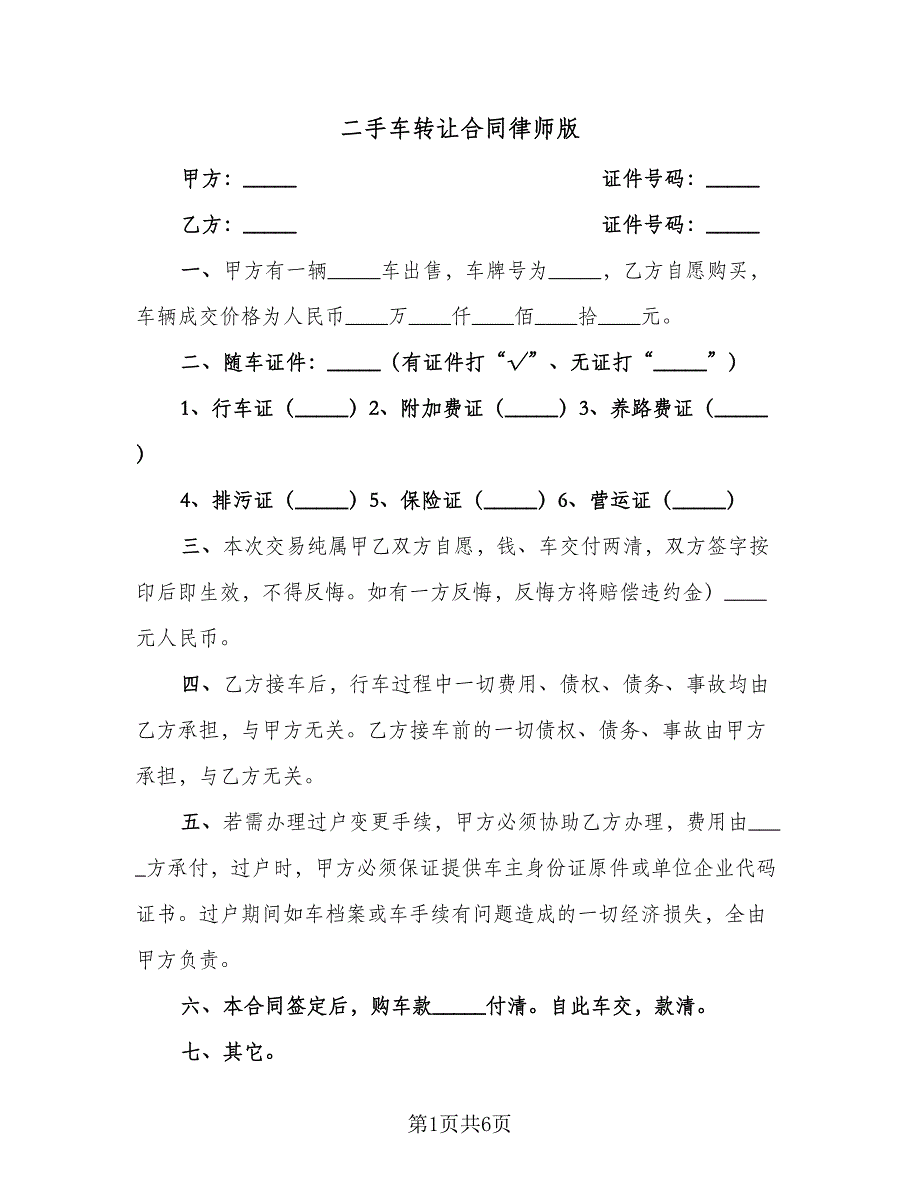 二手车转让合同律师版
甲方：_____ 证件号码：_____
乙方：_____ 证件号码：_____
一、甲方有一辆_____车出售，车牌号为_____，乙方自愿购买，
车辆成交价格为人民币____万____仟____佰____拾____元。
二、随车证件：_____（有证件打“√”、无证打“_____”）
1、行车证（_____）2、附加费证（_____）3、养路费证（_____
）
4、排污证（_____）5、保险证（_____）6、营运证（_____）
三、本次交易纯属甲乙双方自愿，钱、车交付两清，双方签字按
印后即生效，不得反悔。如有一方反悔，反悔方将赔偿违约金）____
元人民币。
四、乙方接车后，行车过程中一切费用、债权、债务、事故均由
乙方承担，与甲方无关。乙方接车前的一切债权、债务、事故由甲方
承担，与乙方无关。
五、若需办理过户变更手续，甲方必须协助乙方办理，费用由___
_方承付，过户时，甲方必须保证提供车主身份证原件或单位企业代码
证书。过户期间如车档案或车手续有问题造成的一切经济损失，全由
甲方负责。
六、本合同签定后，购车款_____付清。自此车交，款清。
七、其它。
第1页共6页